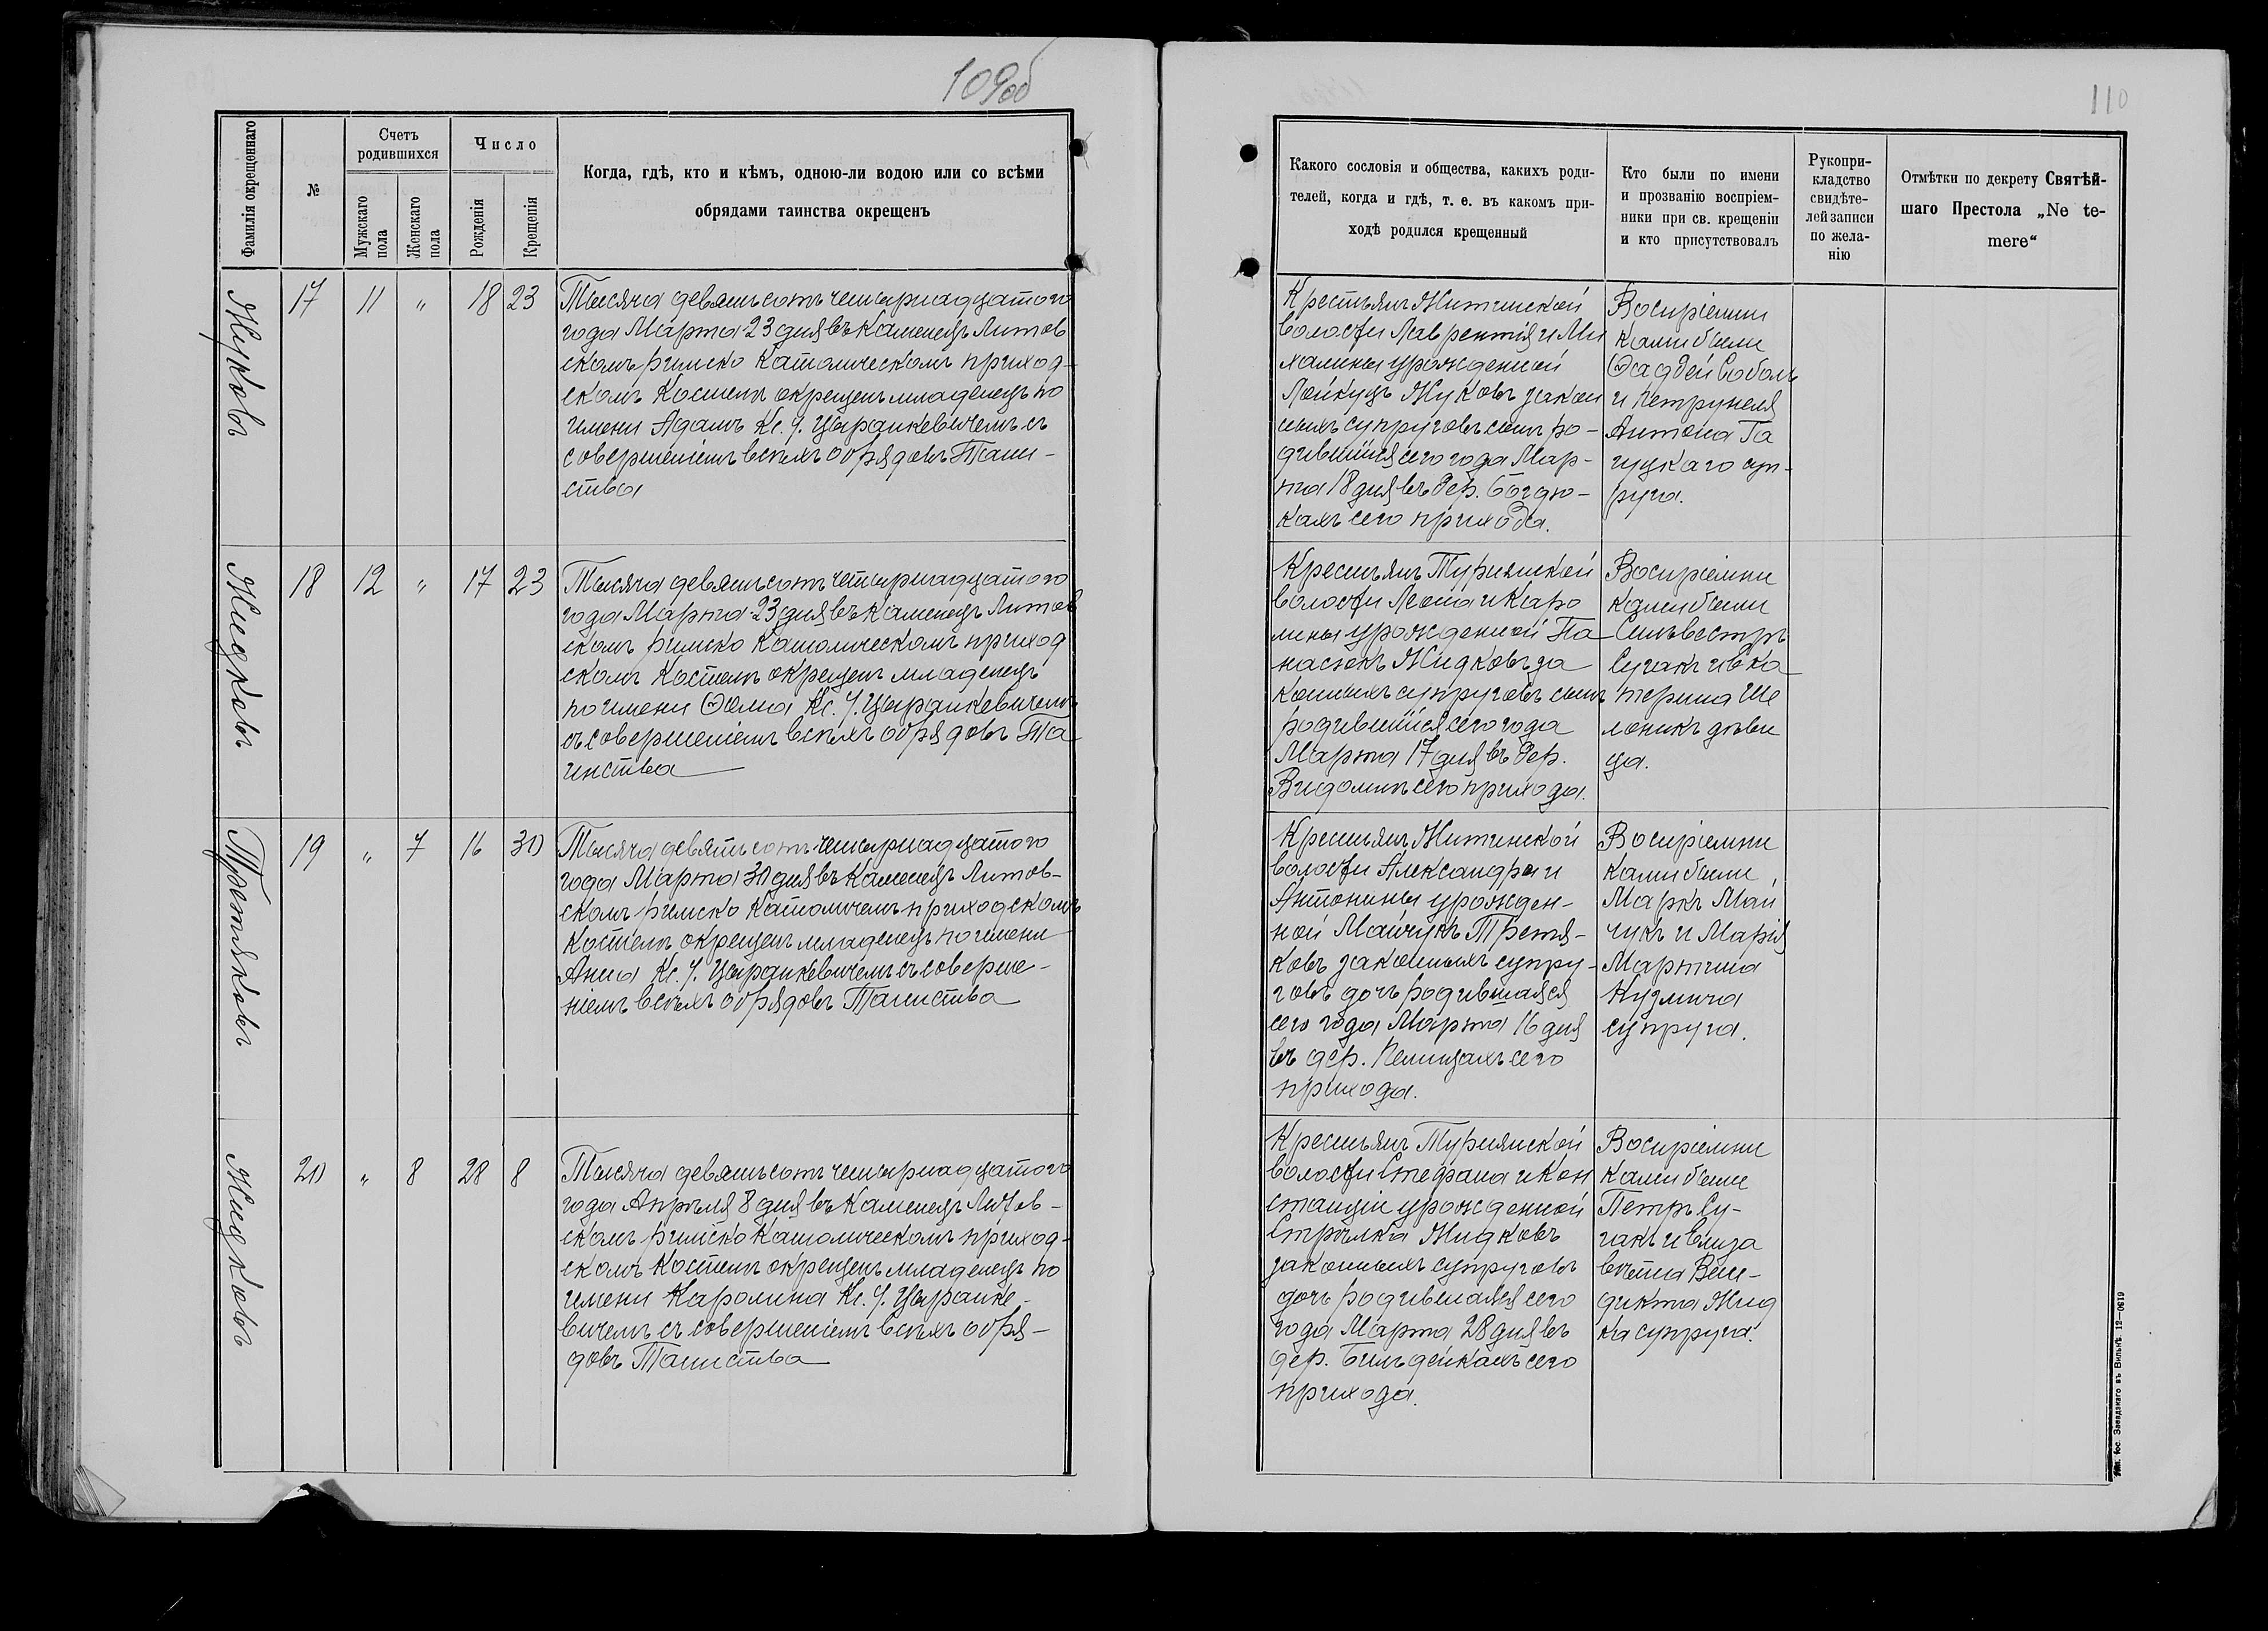 109об
Фамилія окрещеннаго
№
Счетъ родившихся
Мужскаго пола
Женскаго пола
Число
Рожденія
Крещенія
Когда, гдѣ, кто и кѣмъ, одною-ли водою или со всѣми
обрядами таинства окрещенъ
Жуковъ
17
11
"
18
23
Тысяча девятьсотъ четырнадцатого
года Марта 23 дня въ Каменецъ Литов
скомъ римско Католическомъ приход-
скомъ Костелѣ окрещенъ младенецъ по
имени Адамъ Кс. У. Цыранкевичемъ съ
совершеніемъ всѣхъ обрядовъ Таин-
ства
Жидковъ
18
12
"
17
23
Тысяча девятьсотъ четырнадцатого
года Марта 23 дня въ Каменецъ Литов
скомъ римско Католическомъ приход
скомъ Костелѣ окрещенъ младенецъ
по имени Ѳома Кс. У. Цыранкевичемъ
съ совершеніемъ всѣхъ обрядовъ Та
инства
Третяковъ
19
"
7
16
30
Тысяча девятьсотъ четырнадцатого
года Марта 30 дня въ Каменецъ Литов-
скомъ римско Католичемъ приходскомъ
Костелѣ окрещенъ младенецъ по имени
Анна Кс. У. Цыранкевичемъ съ соверше-
ніемъ всѣхъ обрядовъ Таинства
Жидковъ
20
"
8
28
8
Тысяча девятьсотъ четырнадцатого
года Апрѣля 8 дня въ Каменецъ Литов-
скомъ римско Католическомъ приход-
скомъ Костелѣ окрещенъ младенецъ по
имени Каролина Кс. У. Цыранке-
вичемъ съ совершеніемъ всѣхъ обря-
довъ Таинства
110
Какого сословія и общества, какихъ роди-
телей, когда и гдѣ, т. е. въ какомъ при-
ходѣ родился крещенный
Кто были по имени
и прозванію воспріем-
ники при св. крещеніи
и кто присутствовалъ
Рукопри-
кладство
свидѣте-
лей записи
по жела-
нію
Отмѣтки по декрету Святѣй-
шаго Престола „Ne te-
mere“
Крестьянъ Житинской
волости Лаврентія и Ми
халины урожденной
Лойкуцъ Жуковъ закон
ныхъ супруговъ сынъ ро-
дившійся сего года Мар-
та 18 дня въ дер. Богдю-
кахъ сего прихода.
Воспріемни
ками были
Ѳаддей Соболь
и Петрунеля
Антона Га
цуцкаго суп-
руга.
Крестьянъ Турнянской
волости Леона и Каро
лины урожденной Па
насюкъ Жидковъ за
конныхъ супруговъ сынъ
родившійся сего года
Марта 17 дня въ дер.
Видомлѣ сего прихода.
Воспріемни
ками были
Сильвестръ
Сугакъ и Ека
терина Ше
лоникъ дѣви
ца.
Крестьянъ Житинской
волости Александра и
Антонины урожден-
ной Майчукъ Третя-
ковъ законныхъ супру-
говъ дочь родившаяся
сего года Марта 16 дня
въ дер. Пелищахъ сего
прихода.
Воспріемни
ками были
Маркъ Май
чукъ и Марія
Мартина
Кузмича
супруга.
Крестьянъ Турнянской
волости Стефана и Кон
станціи урожденной
Стрѣлка Жидковъ
законныхъ супруговъ
дочь родившаяся сего
года Марта 28 дня въ
дер. Бильдейкахъ сего
прихода.
Воспріемни
ками были
Петръ Су-
гакъ и Елиза
вета Вин-
дикта Жид
ка супруга.
Тип. Іос. Завадзкаго въ Вильнѣ. 12—0619